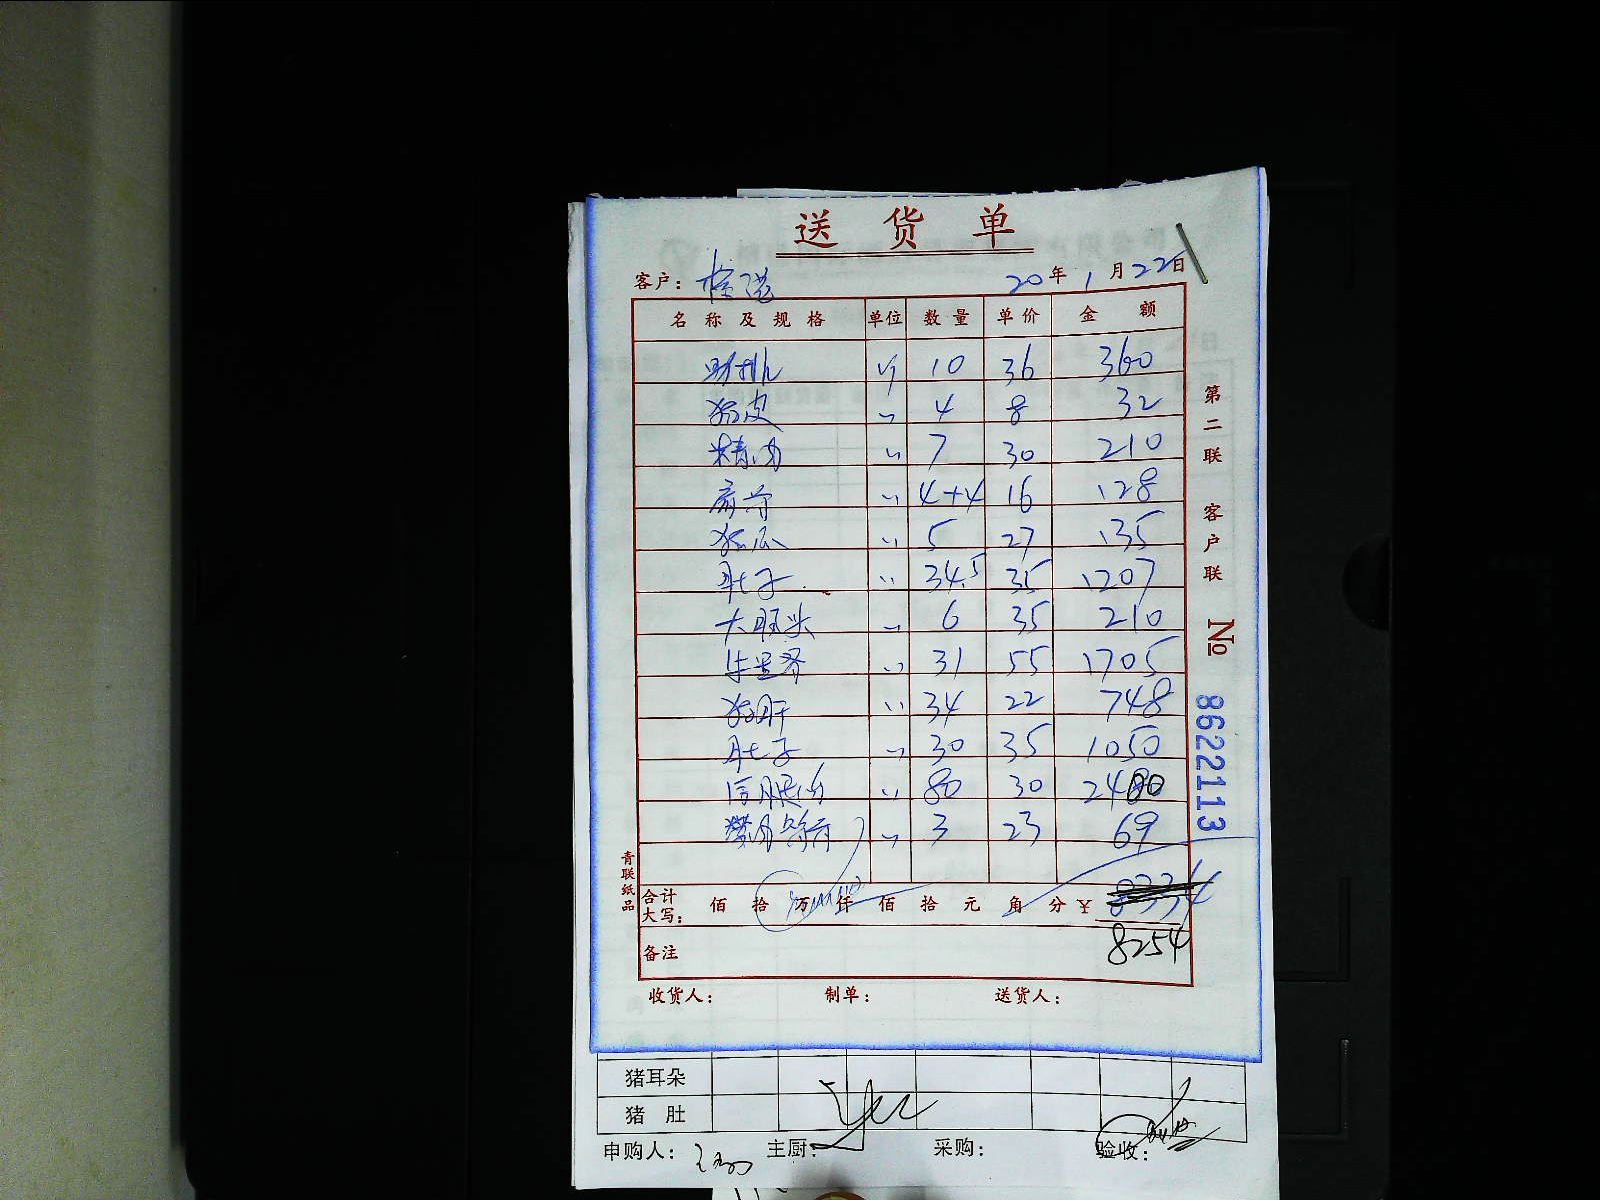 送货单
客户： 20年1月22日
名称及规格 单位 数量 单价 金额
肋排 斤 10 36 360
猪皮 〃 4 8 32
精肉 〃 7 30 210
〃 4+4 16 128
〃 5 27 135
肚子 〃 34.5 35 1207
大肠头 〃 6 35 210
〃 31 55 1705
猪肝 〃 34 22 748
肚子 〃 30 35 1050
〃 80 30 2400
〃 3 23 69
合计大写： 佰 拾 万 仟 佰 拾 元 角 分 ¥ 8334
备注 8254
收货人： 制单： 送货人：
第二联 客户联
№ 8622113
青联纸品
猪耳朵
猪肚
申购人： 主厨： 采购： 验收：